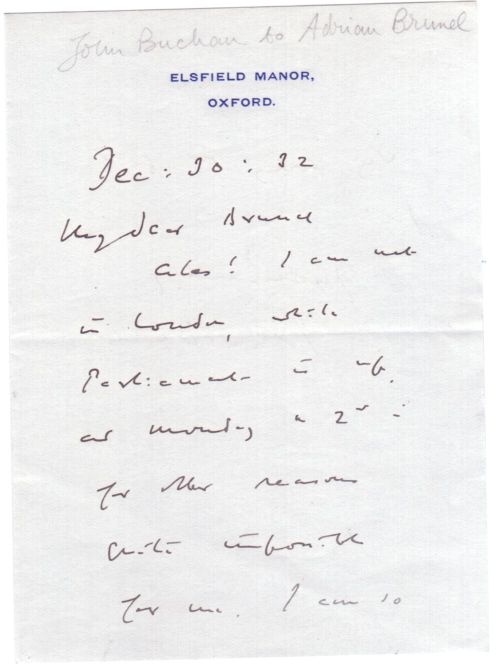 John Buchan to Adrian Brunel
ELSFIELD MANOR,
OXFORD.
Dec: 30: 32
My dear Brunel
Alas! I am not
in London, while
Parliament is up,
and Monday 2nd is
for other reasons
quite impossible
for me. I am so